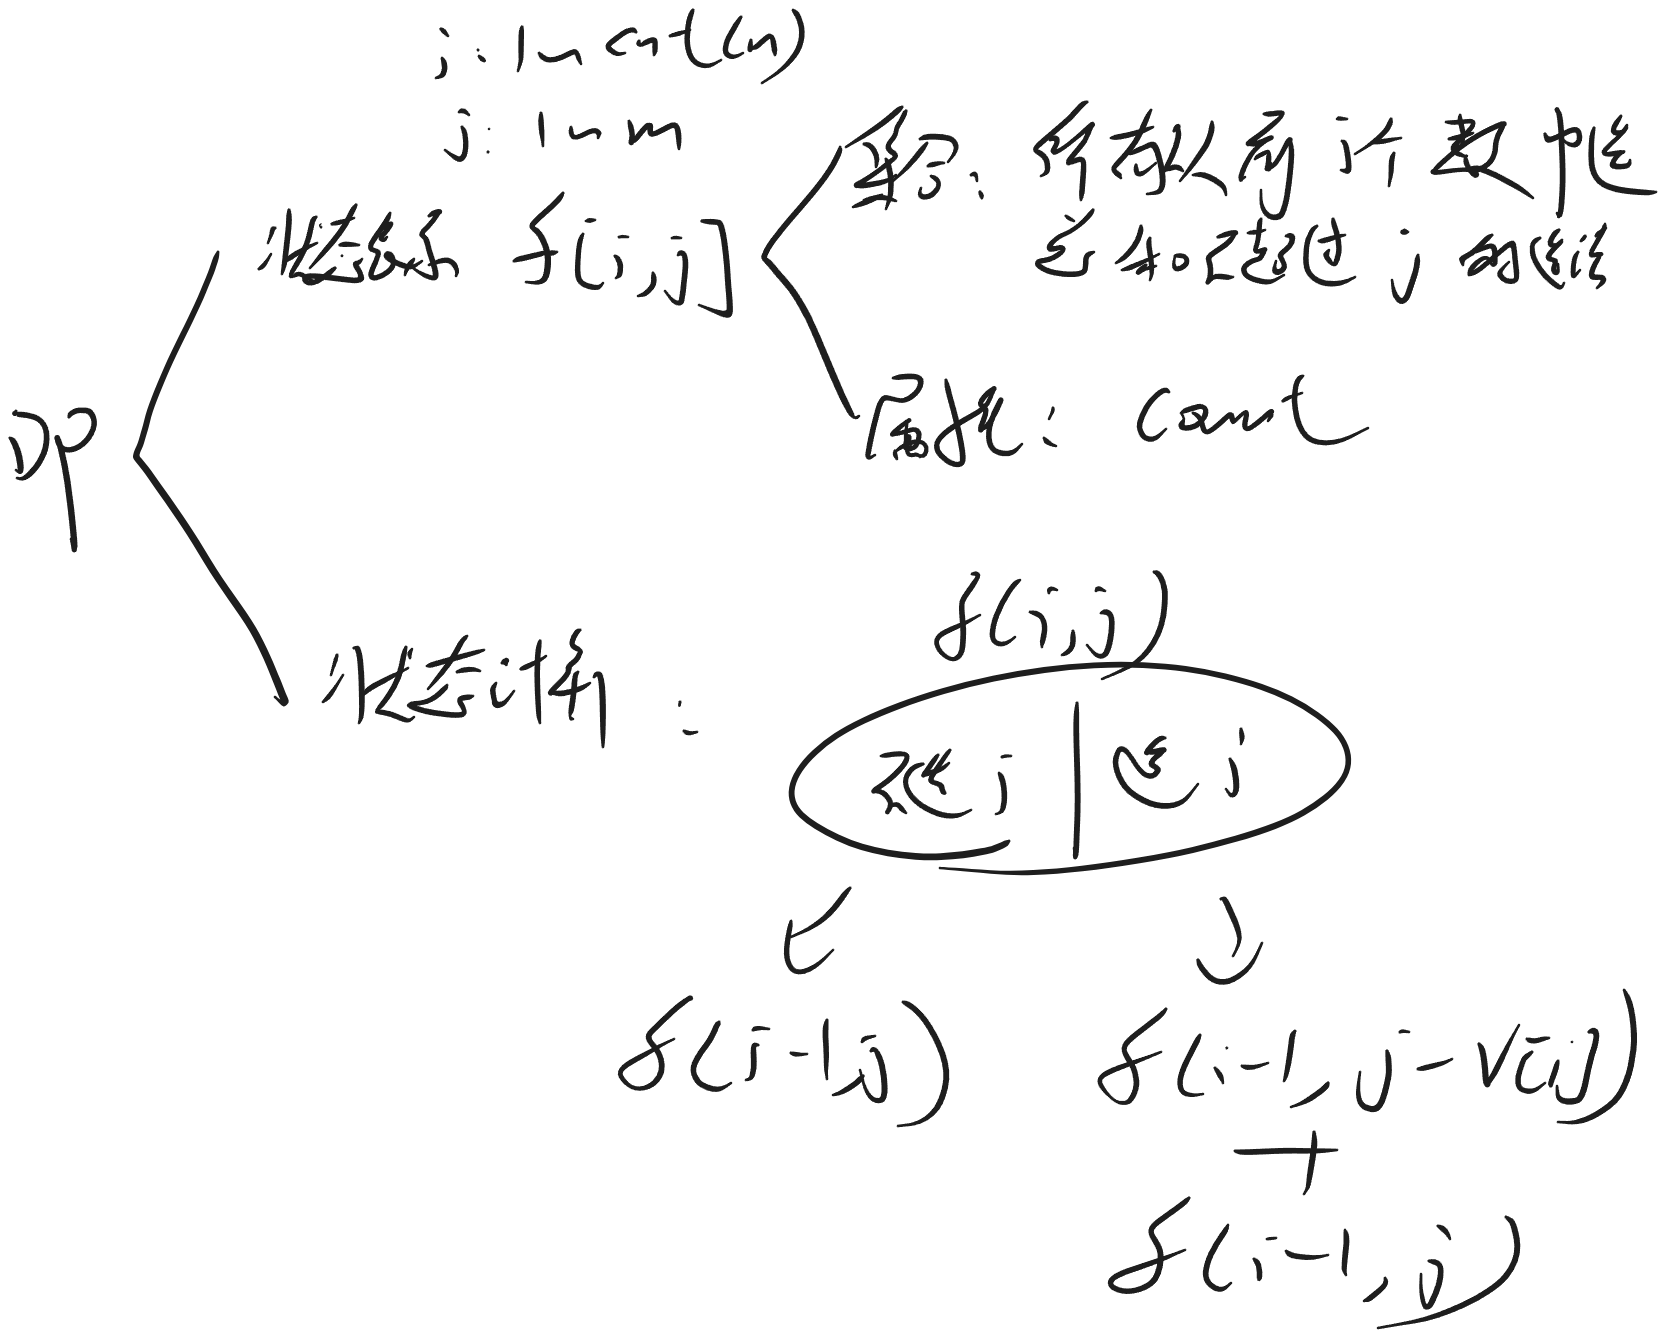 i: 1~cnt(n)
j: 1~m
集合: 所有从前i个数中选
总和不超过j的选法
状态表示 f[i,j]
属性: count
DP
状态计算:
f(i,j)
不选j | 选j
f(i-1,j)
f(i-1, j-v[i])
+
f(i-1, j)